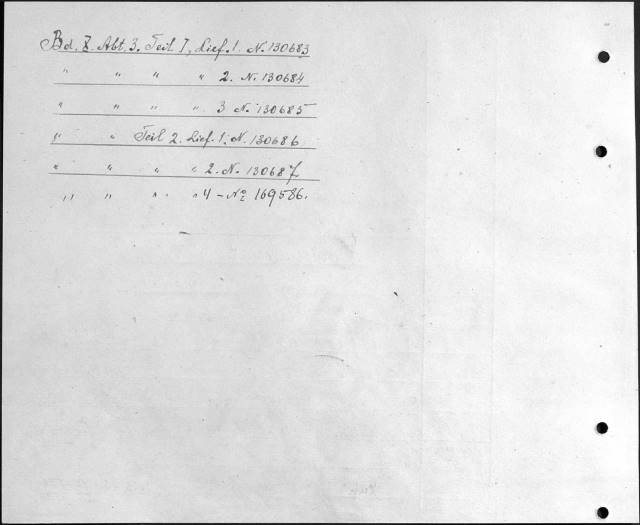 Bd. X. Abt. 3. Teil I, Lief. 1. N. 130683
" " " " 2. N. 130684
" " " " 3 N. 130685
" " Teil 2. Lief. 1. N. 130686
" " " " 2. N. 130687
" " " " 4 - № 169586.